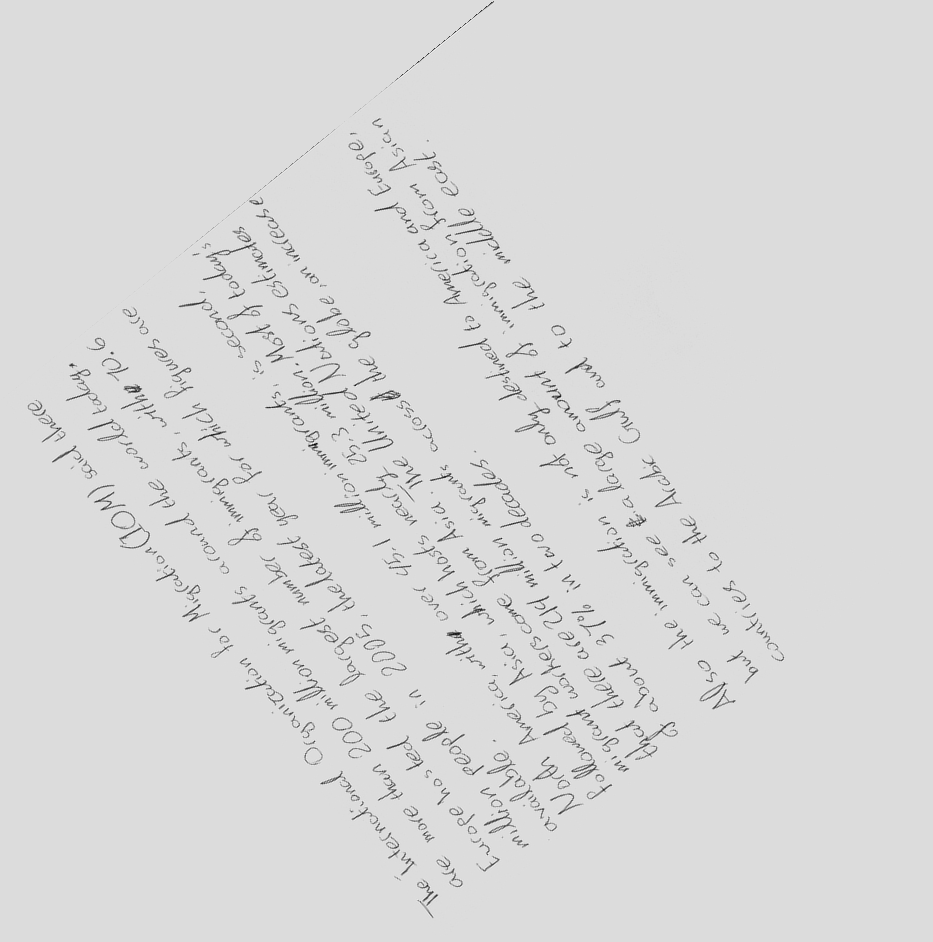 The International Organization for Migration (IOM) said there
are more than 200 million migrants around the world today.
Europe hosted the largest number of immigrants, with 70.6
million people in 2005, the latest year for which figures are
available.
North America, with over 45.1 million immigrants, is second,
followed by Asia, which hosts nearly 25.3 million. Most of today's
migrant workers come from Asia. The United Nations estimates
that there are 244 million migrants across the globe, an increase
of about 37% in two decades.
Also the immigration is not only destined to America and Europe,
but we can see a large amount of immigration from Asian
countries to the Arabic Gulf and to the middle east.